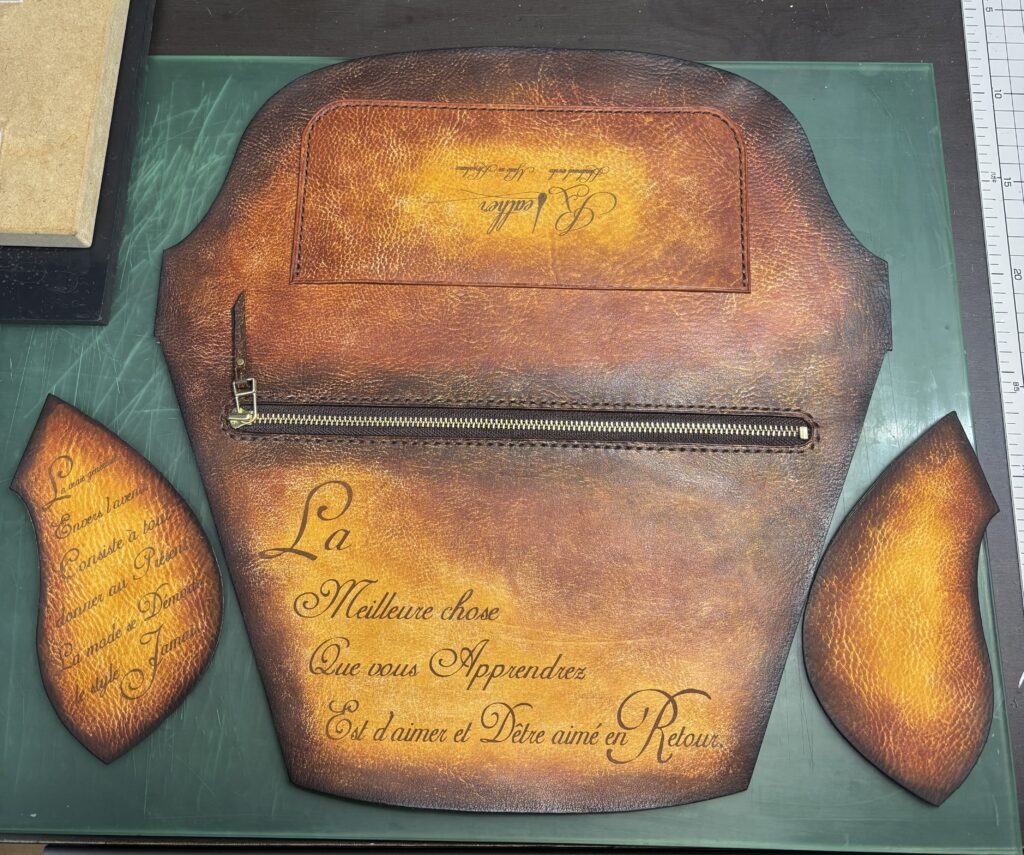 Leather
La
Meilleure chose
Que vous Apprendrez
Est d'aimer et Dêtre aimé en Retour.
La vraie générosité
Envers l'avenir
Consiste à tout
donner au Présent
La mode se Démode
le style Jamais